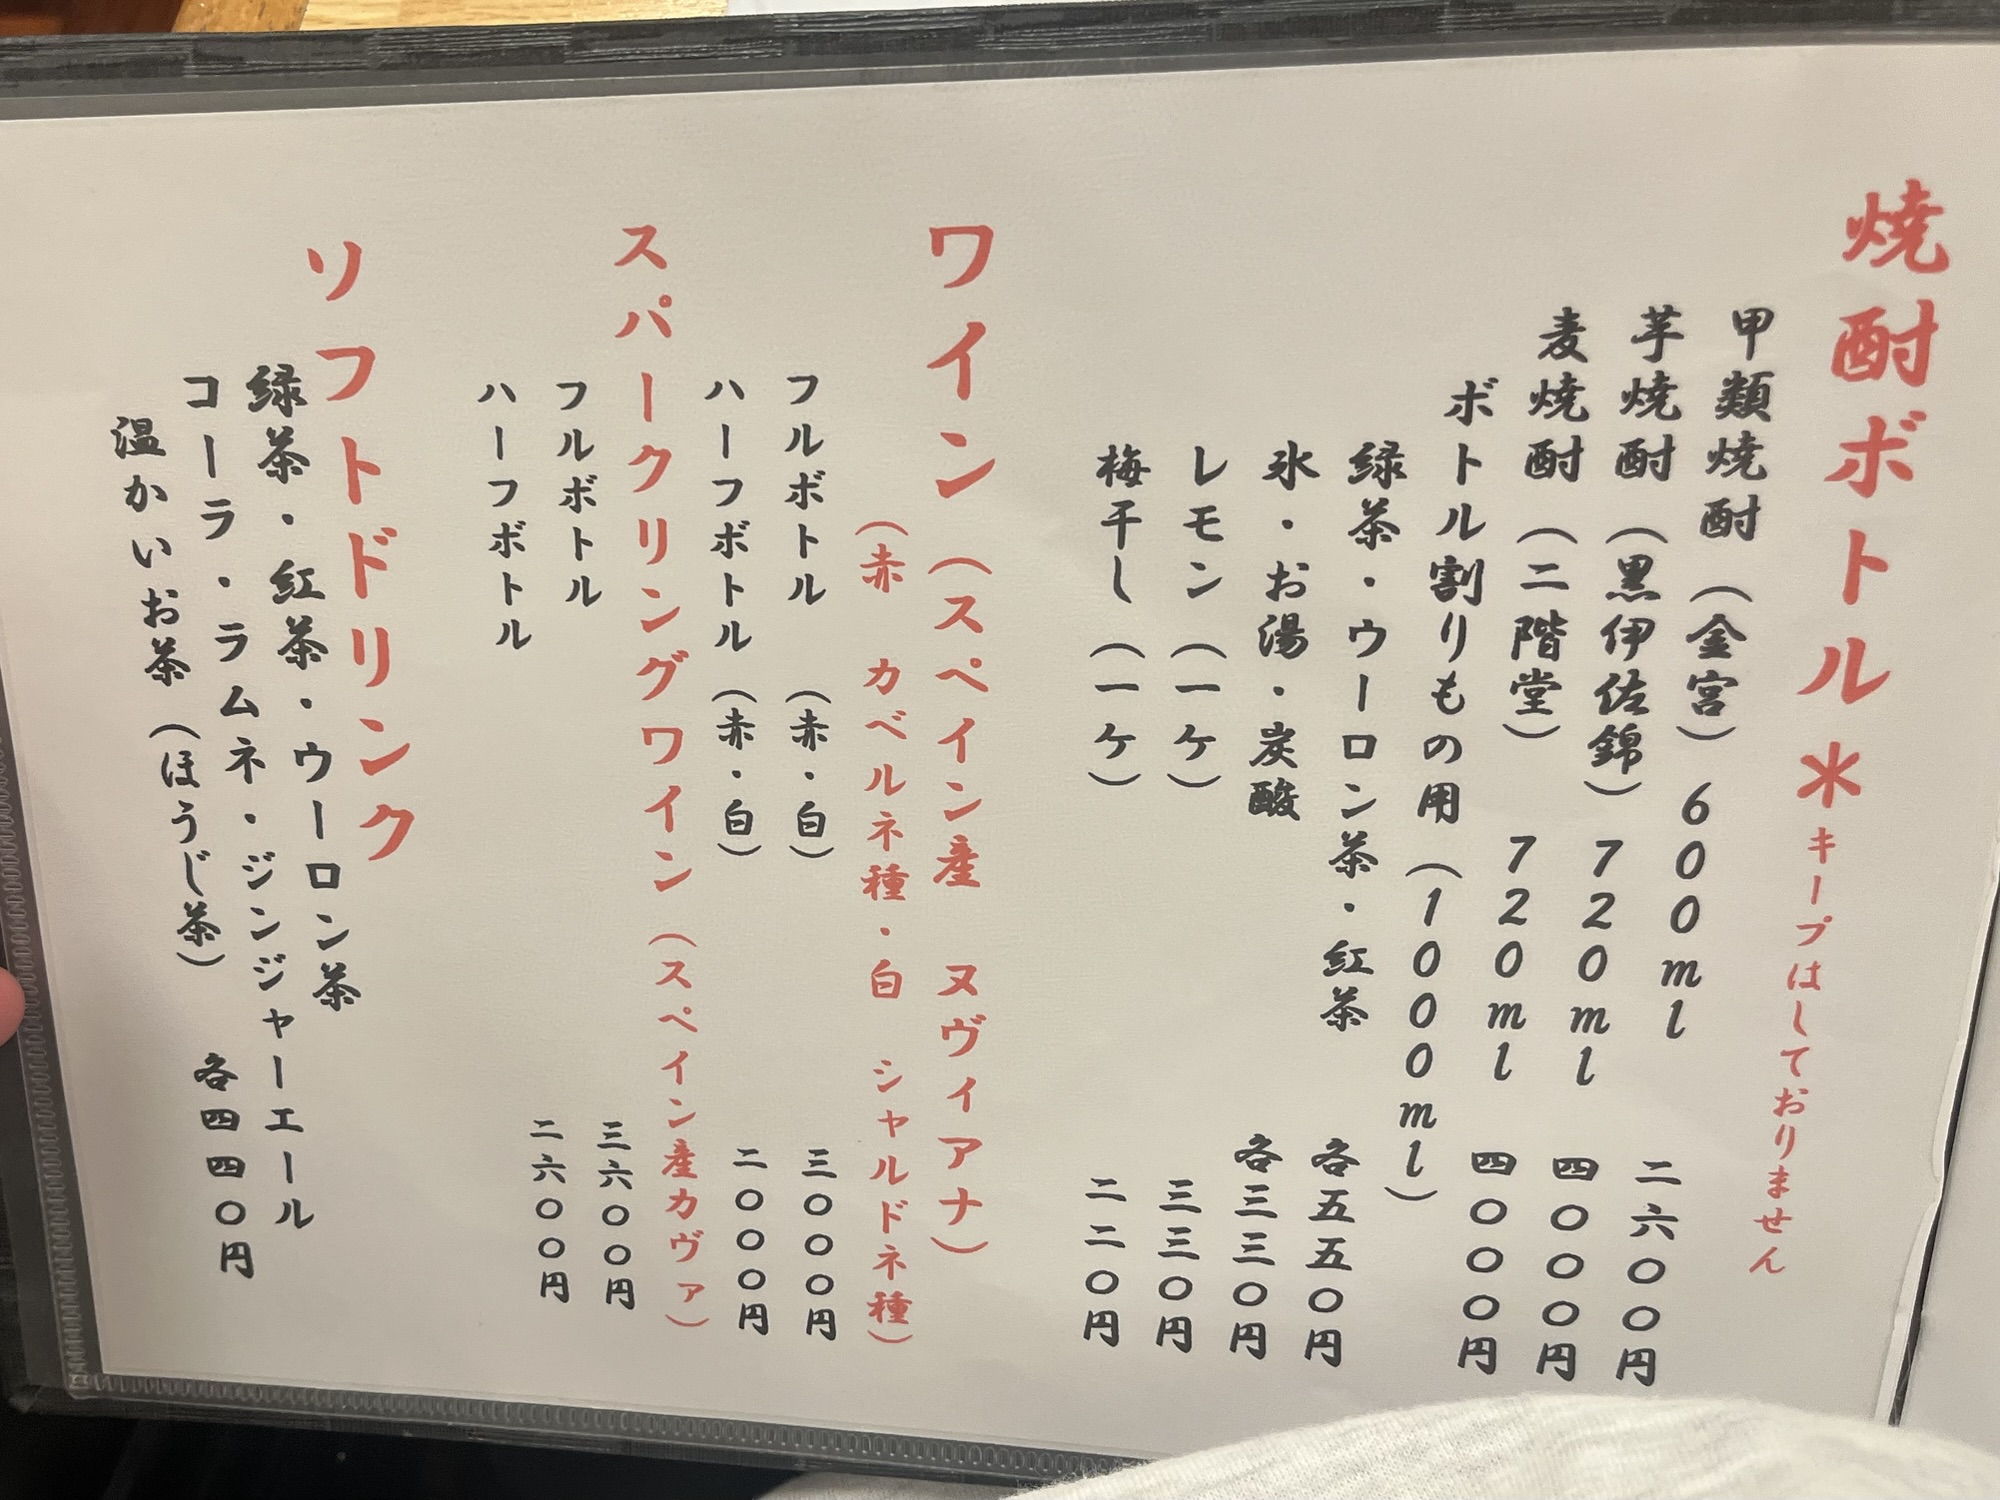 焼酎ボトル ＊キープはしておりません
甲類焼酎（金宮）600ml 二六〇〇円
芋焼酎（黒伊佐錦）720ml 四〇〇〇円
麦焼酎（二階堂）720ml 四〇〇〇円
ボトル割りもの用（1000ml）
緑茶・ウーロン茶・紅茶 各五五〇円
氷・お湯・炭酸 各三三〇円
レモン（一ケ） 三三〇円
梅干し（一ケ） 二二〇円
ワイン（スペイン産 ヌヴィアナ）
（赤 カベルネ種・白 シャルドネ種）
フルボトル（赤・白） 三〇〇〇円
ハーフボトル（赤・白） 二〇〇〇円
スパークリングワイン（スペイン産カヴァ）
フルボトル 三六〇〇円
ハーフボトル 二六〇〇円
ソフトドリンク
緑茶・紅茶・ウーロン茶
コーラ・ラムネ・ジンジャーエール
温かいお茶（ほうじ茶） 各四四〇円